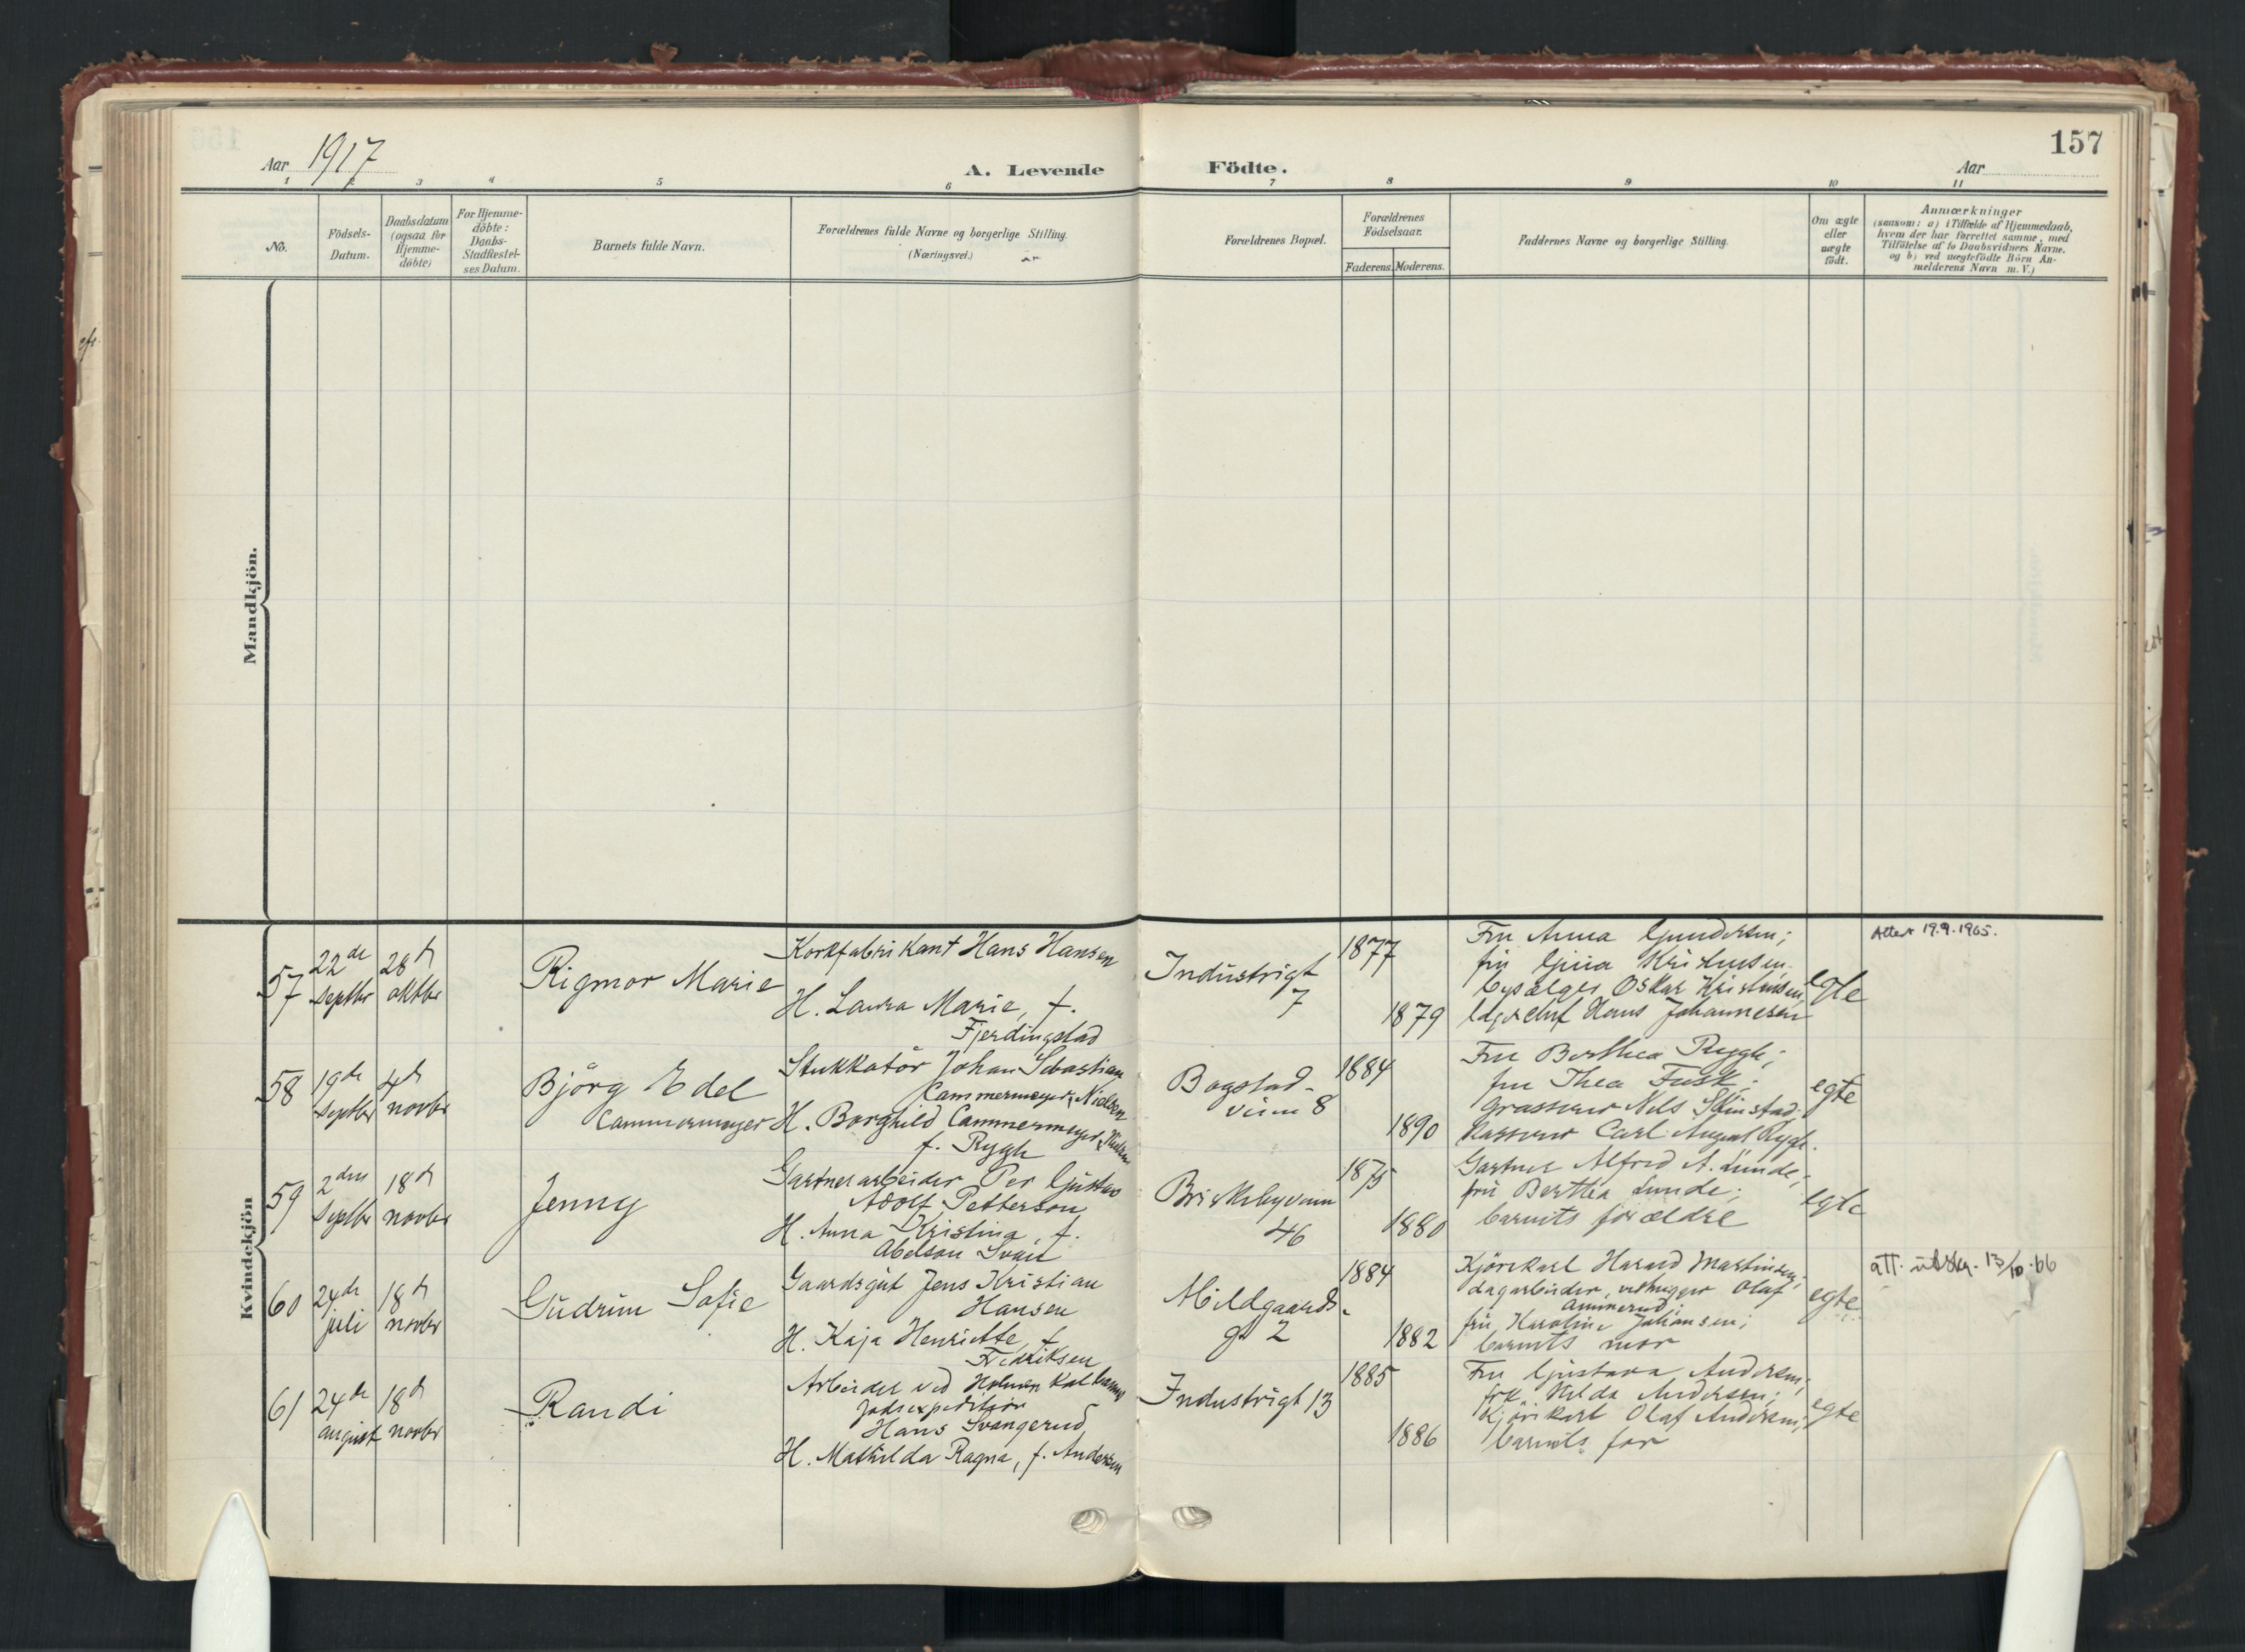 157
Aar 1917
A. Levende Födte.
Aar
1 2 3 4 5 6 7 8 9 10 11
No.
Födsels-
Datum.
Daabsdatum
(ogsaa for
Hjemme-
döbte)
For Hjemme-
döbte:
Daabs-
Stadfæstel-
ses Datum.
Barnets fulde Navn.
Forældrenes fulde Navne og borgerlige Stilling.
(Næringsvei.)
Forældrenes Bopæl.
Forældrenes
Födselsaar.
Faderens. Moderens.
Faddernes Navne og borgerlige Stilling.
Om ægte
eller
uægte
födt.
Anmærkninger
(saasom: a) i Tilfælde af Hjemmedaab,
hvem der har forrettet samme, med
Tilföielse af to Daabsvidners Navne.
og b) ved uægtefödte Börn An-
melderens Navn m. V.)
Mandkjön.
Kvindekjön
57
22de
Septbr
28d
oktbr
Rigmor Marie
Korkfabrikant Hans Hansen
H. Laura Marie, f.
Fjerdingstad
Industrigt
7
1877
1879
Fru Anna Gundersen;
fru Gina Kristensen
Oskar Kristensen,
Hans Johannesen
egte
Attest 19.9.1965.
58
19de
Septbr
4d
novbr
Björg Edel
Cammermeyer
Stukkatör Johan Sebastian
Cammermeyer Nielsen
H. Borghild Cammermeyer Nielsen
f. Rygh
Bogstad-
veien 8
1884
1890
Fru Berthea Rygh;
fru Thea Fusk;
Grasserer Nils Skinstad
Kasserer Carl August Rygh.
egte
59
2den
Septbr
18d
novbr
Jenny
Gartnerarbeider Per Gustav
Adolf Petterson
H. Anna Kristina, f.
Abelson Svan
Briskebyveien
46
1875
1880
Gartner Alfred A. Lunde;
fru Berthea Lunde;
barnets forældre
egte
60
24de
juli
18d
novbr
Gudrun Sofie
Gaardsgut Jens Kristian
Hansen
H. Kaja Henriette, f.
Fredriksen
Meldgaards-
gt 2
1884
1882
Kjörekarl Harard Martinsen;
dagarbeider, vedhugger Olaf
Ammerud;
fru Karoline Johansen;
barnets mor
egte
att. utskr. 13/10.66
61
24de
august
18d
novbr
Randi
Arbeider ved Holmenkolbanens
godsexpedition
Hans Svangerud
H. Mathilda Ragna, f. Andersen
Industrigt 13
1885
1886
Fru Gustava Andersen;
frk. Hilda Andersen;
Kjörekarl Olaf Andersen;
barnets far
egte